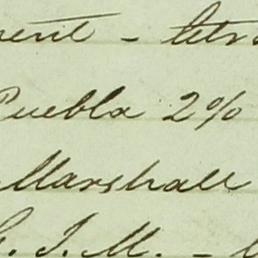 ment - tetra
Puebla 2%
Marshall
G. J. M. -